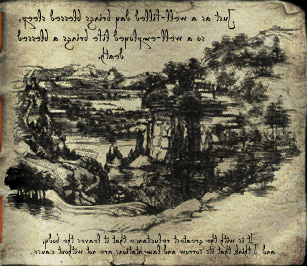 Just as a well-filled day brings blessed sleep,
so a well-employed life brings a blessed
death.
It is with the greatest reluctance that it leaves the body,
and I think that its sorrow and lamentations are not without cause.